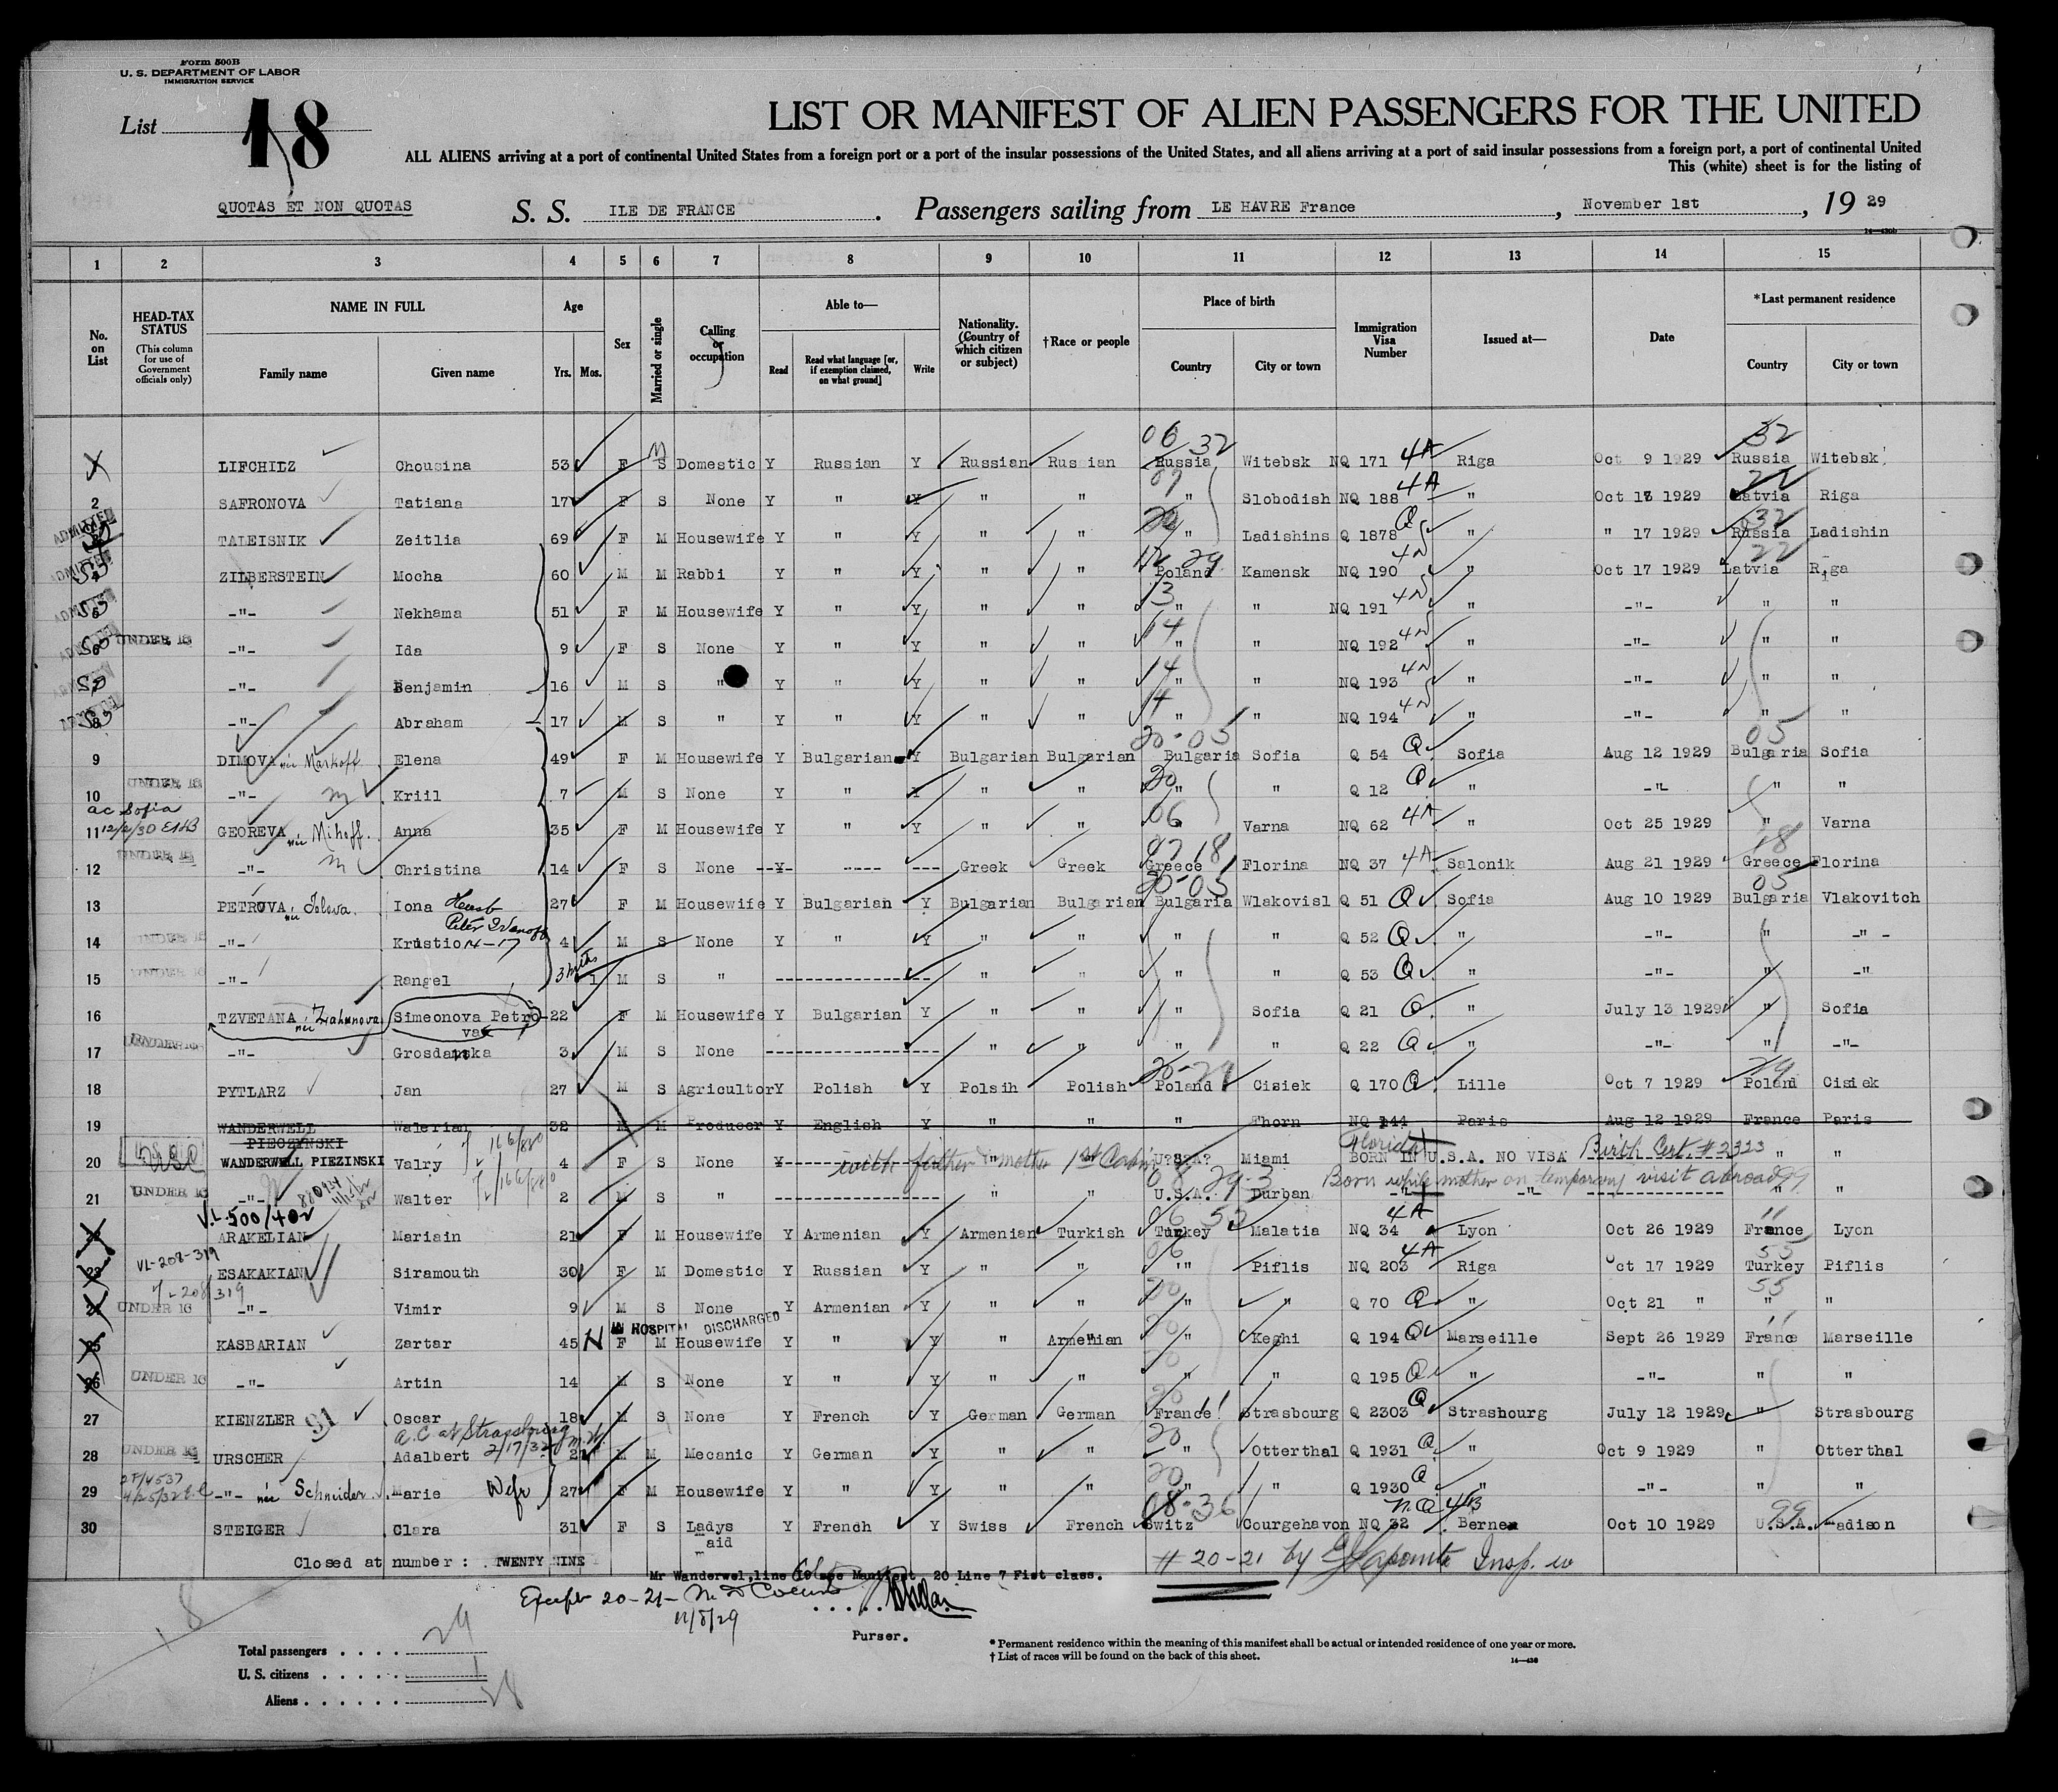 Form 500B
U. S. DEPARTMENT OF LABOR
IMMIGRATION SERVICE
List 18
LIST OR MANIFEST OF ALIEN PASSENGERS FOR THE UNITED
ALL ALIENS arriving at a port of continental United States from a foreign port or a port of the insular possessions of the United States, and all aliens arriving at a port of said insular possessions from a foreign port, a port of continental United
This (white) sheet is for the listing of
QUOTAS ET NON QUOTAS S. S. ILE DE FRANCE . Passengers sailing from LE HAVRE France , November 1st , 19 29
14—430b
1 2 3 4 5 6 7 8 9 10 11 12 13 14 15
No. on List
HEAD-TAX STATUS (This column for use of Government officials only)
NAME IN FULL Family name Given name
Age Yrs. Mos.
Sex
Married or single
Calling or occupation
Able to— Read Read what language [or, if exemption claimed, on what ground] Write
Nationality. (Country of which citizen or subject)
†Race or people
Place of birth Country City or town
Immigration Visa Number
Issued at—
Date
*Last permanent residence Country City or town
06 32 32
LIFCHILZ Chousina 53 F S Domestic Y Russian Y Russian Russian Russia Witebsk NQ 171 4A Riga Oct 9 1929 Russia Witebsk
2 SAFRONOVA Tatiana 17 F S None Y " Y " " " Slobodish NQ 188 4A " Oct 18 1929 Latvia Riga
ADMITTED TALEISNIK Zeitlia 69 F M Housewife Y " Y " " " Ladishins Q 1878 Q " " 17 1929 Russia Ladishin
ADMITTED ZILBERSTEIN Mocha 60 M M Rabbi Y " Y " " Poland Kamensk NQ 190 4N " Oct 17 1929 Latvia Riga
-"- Nekhama 51 F M Housewife Y " Y " " " " NQ 191 4N " -"- " "
UNDER 16 -"- Ida 9 F S None Y " Y " " " " NQ 192 4N " -"- " "
-"- Benjamin 16 M S " Y " Y " " " " NQ 193 4N " -"- " "
8 -"- Abraham 17 M S " Y " Y " " " " NQ 194 4N " -"- " "
9 DIMOVA née Markoff Elena 49 F M Housewife Y Bulgarian Y Bulgarian Bulgarian Bulgaria Sofia Q 54 Q Sofia Aug 12 1929 Bulgaria Sofia
10 UNDER 16 -"- Kriil 7 M S None Y " Y " " " " Q 12 Q " -"- " "
ac Sofia
11 12/2/30 GEOREVA née Mihoff. Anna 35 F M Housewife Y " Y " " " Varna NQ 62 4A " Oct 25 1929 " Varna
12 UNDER 16 -"- Christina 14 F S None --Y- ----- --- Greek Greek Greece Florina NQ 37 4A Salonik Aug 21 1929 Greece Florina
13 PETROVA née Iolova. Iona 27 F M Housewife Y Bulgarian Y Bulgarian Bulgarian Bulgaria Wlakovisl Q 51 Q Sofia Aug 10 1929 Bulgaria Vlakovitch
Husb Peter Ivanoff
14 UNDER 16 -"- Krustio 14-17 4 M S None Y " Y " " " " Q 52 Q " -"- " -"-
15 UNDER 16 -"- Rangel 3 mths 1 M S " ---------------- " " " " Q 53 Q " -"- " -"-
16 TZVETANA née Simeonova Petrova 22 F M Housewife Y Bulgarian Y " " " Sofia Q 21 Q " July 13 1929 " Sofia
17 UNDER 16 -"- 3 M S None ---------------- " " " " Q 22 Q " -"- " -"-
18 PYTLARZ Jan 27 M S Agricultor Y Polish Y Polsih Polish Poland Cisiek Q 170 Q Lille Oct 7 1929 Poland Cisiek
19 WANDERWELL Walerian 32 M M Producer Y English Y " " " Thorn NQ 144 Paris Aug 12 1929 France Paris
PIECZYNSKI
20 USC WANDERWELL PIEZINSKI Valry 4 F S None Y with father & mother 1st Cabin " U?S.A? Miami Florida BORN IN U.S.A. NO VISA Birth Cert. # 2323 " "
21 UNDER 16 -"- Walter 2 M S " ---------------- " " U.S.A. Durban Born while mother on temporary visit abroad -"- -"- " "
VL-500/402
ARAKELIAN Mariain 21 F M Housewife Y Armenian Y Armenian Turkish Turkey Malatia NQ 34 4A Lyon Oct 26 1929 France Lyon
VL-208-319
23 ESAKAKIAN Siramouth 30 F M Domestic Y Russian Y " " "" Piflis NQ 203 4A Riga Oct 17 1929 Turkey Piflis
V-208/319
24 UNDER 16 -"- Vimir 9 M S None Y Armenian Y " " " " Q 70 Q " Oct 21 " " "
IN HOSPITAL DISCHARGED
25 KASBARIAN Zartar 45 H F M Housewife Y " Y " Armenian " Keghi Q 194 Q Marseille Sept 26 1929 France Marseille
26 UNDER 16 -"- Artin 14 M S None Y " Y " " " " Q 195 Q " -"- " "
27 KIENZLER 91 Oscar 18 M S None Y French Y German German France Strasbourg Q 2303 Q Strasbourg July 12 1929 " Strasbourg
A.C. at Strassbourg 2/17/32
28 UNDER 16 URSCHER Adalbert 2 M M Mecanic Y German Y " " " Otterthal Q 1931 Q " Oct 9 1929 " Otterthal
29 -"- née Schneider Marie Wife 27 F M Housewife Y " Y " " " " Q 1930 Q " -"- " "
30 STEIGER Clara 31 F S Ladys aid Y French Y Swiss French Switz Courgehavon NQ 32 N.Q. 4B Berne Oct 10 1929 U.S.A. Madison
Closed at number : TWENTY NINE
Mr Wanderwel,line 19 see Manifest 20 Line 7 Fist class.
# 20-21 by Lapointe Insp.
Except 20-21-
11/8/29
Purser.
Total passengers . . . . 29
U. S. citizens . . . . . 1
Aliens . . . . . . 28
* Permanent residence within the meaning of this manifest shall be actual or intended residence of one year or more.
† List of races will be found on the back of this sheet.